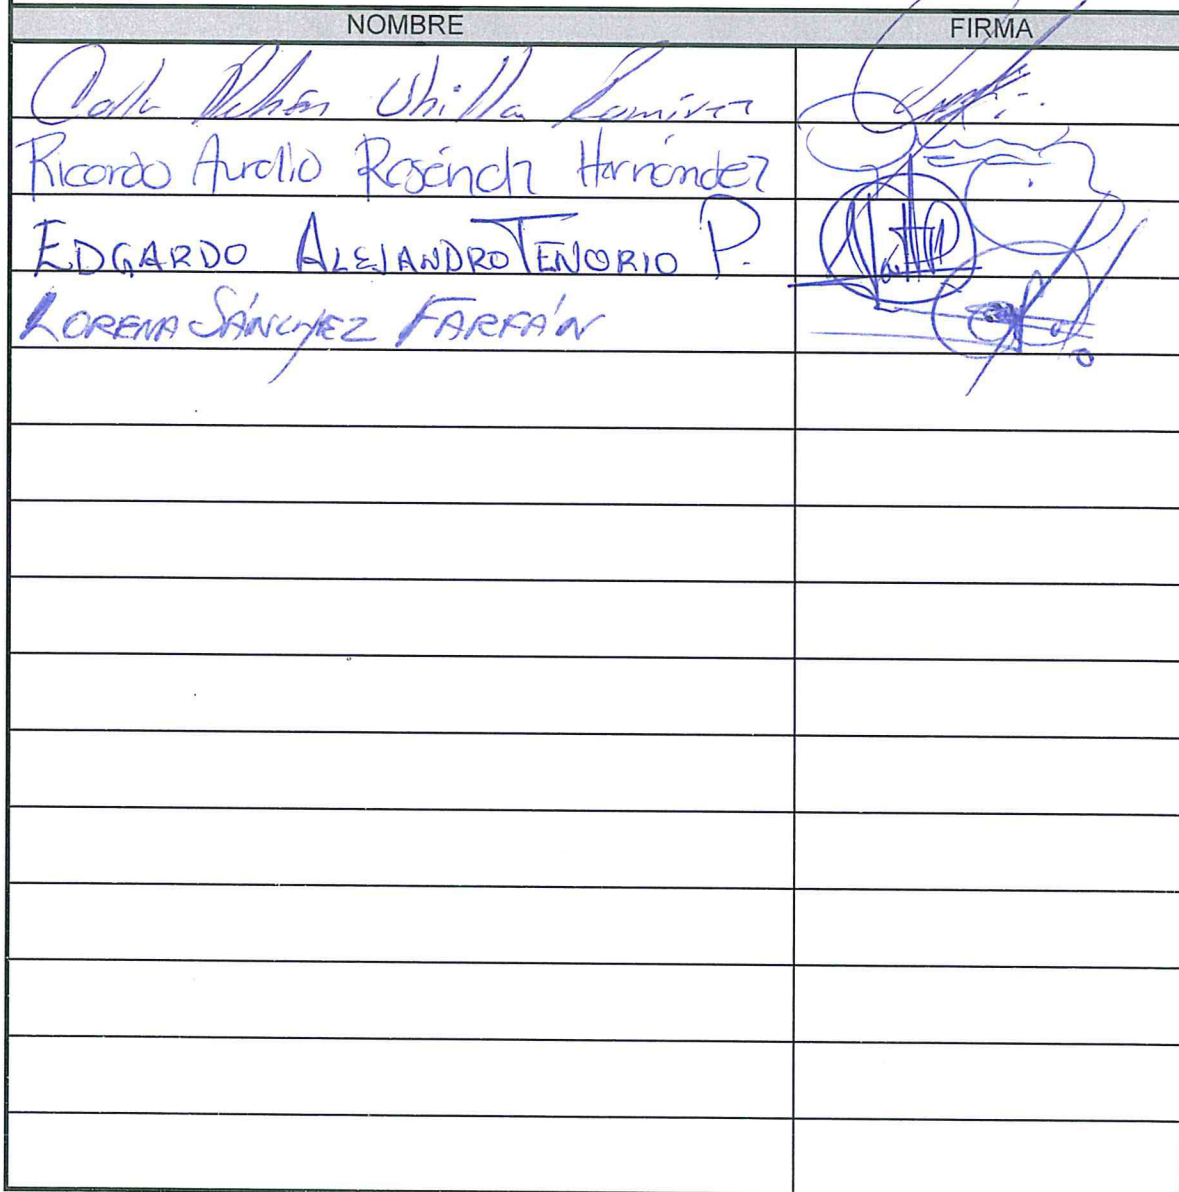 NOMBRE FIRMA
Ubilla Ramírez
Ricardo Aurelio Hernández
EDGARDO ALEJANDRO TENORIO P.
LORENA SÁNCHEZ FARFÁN